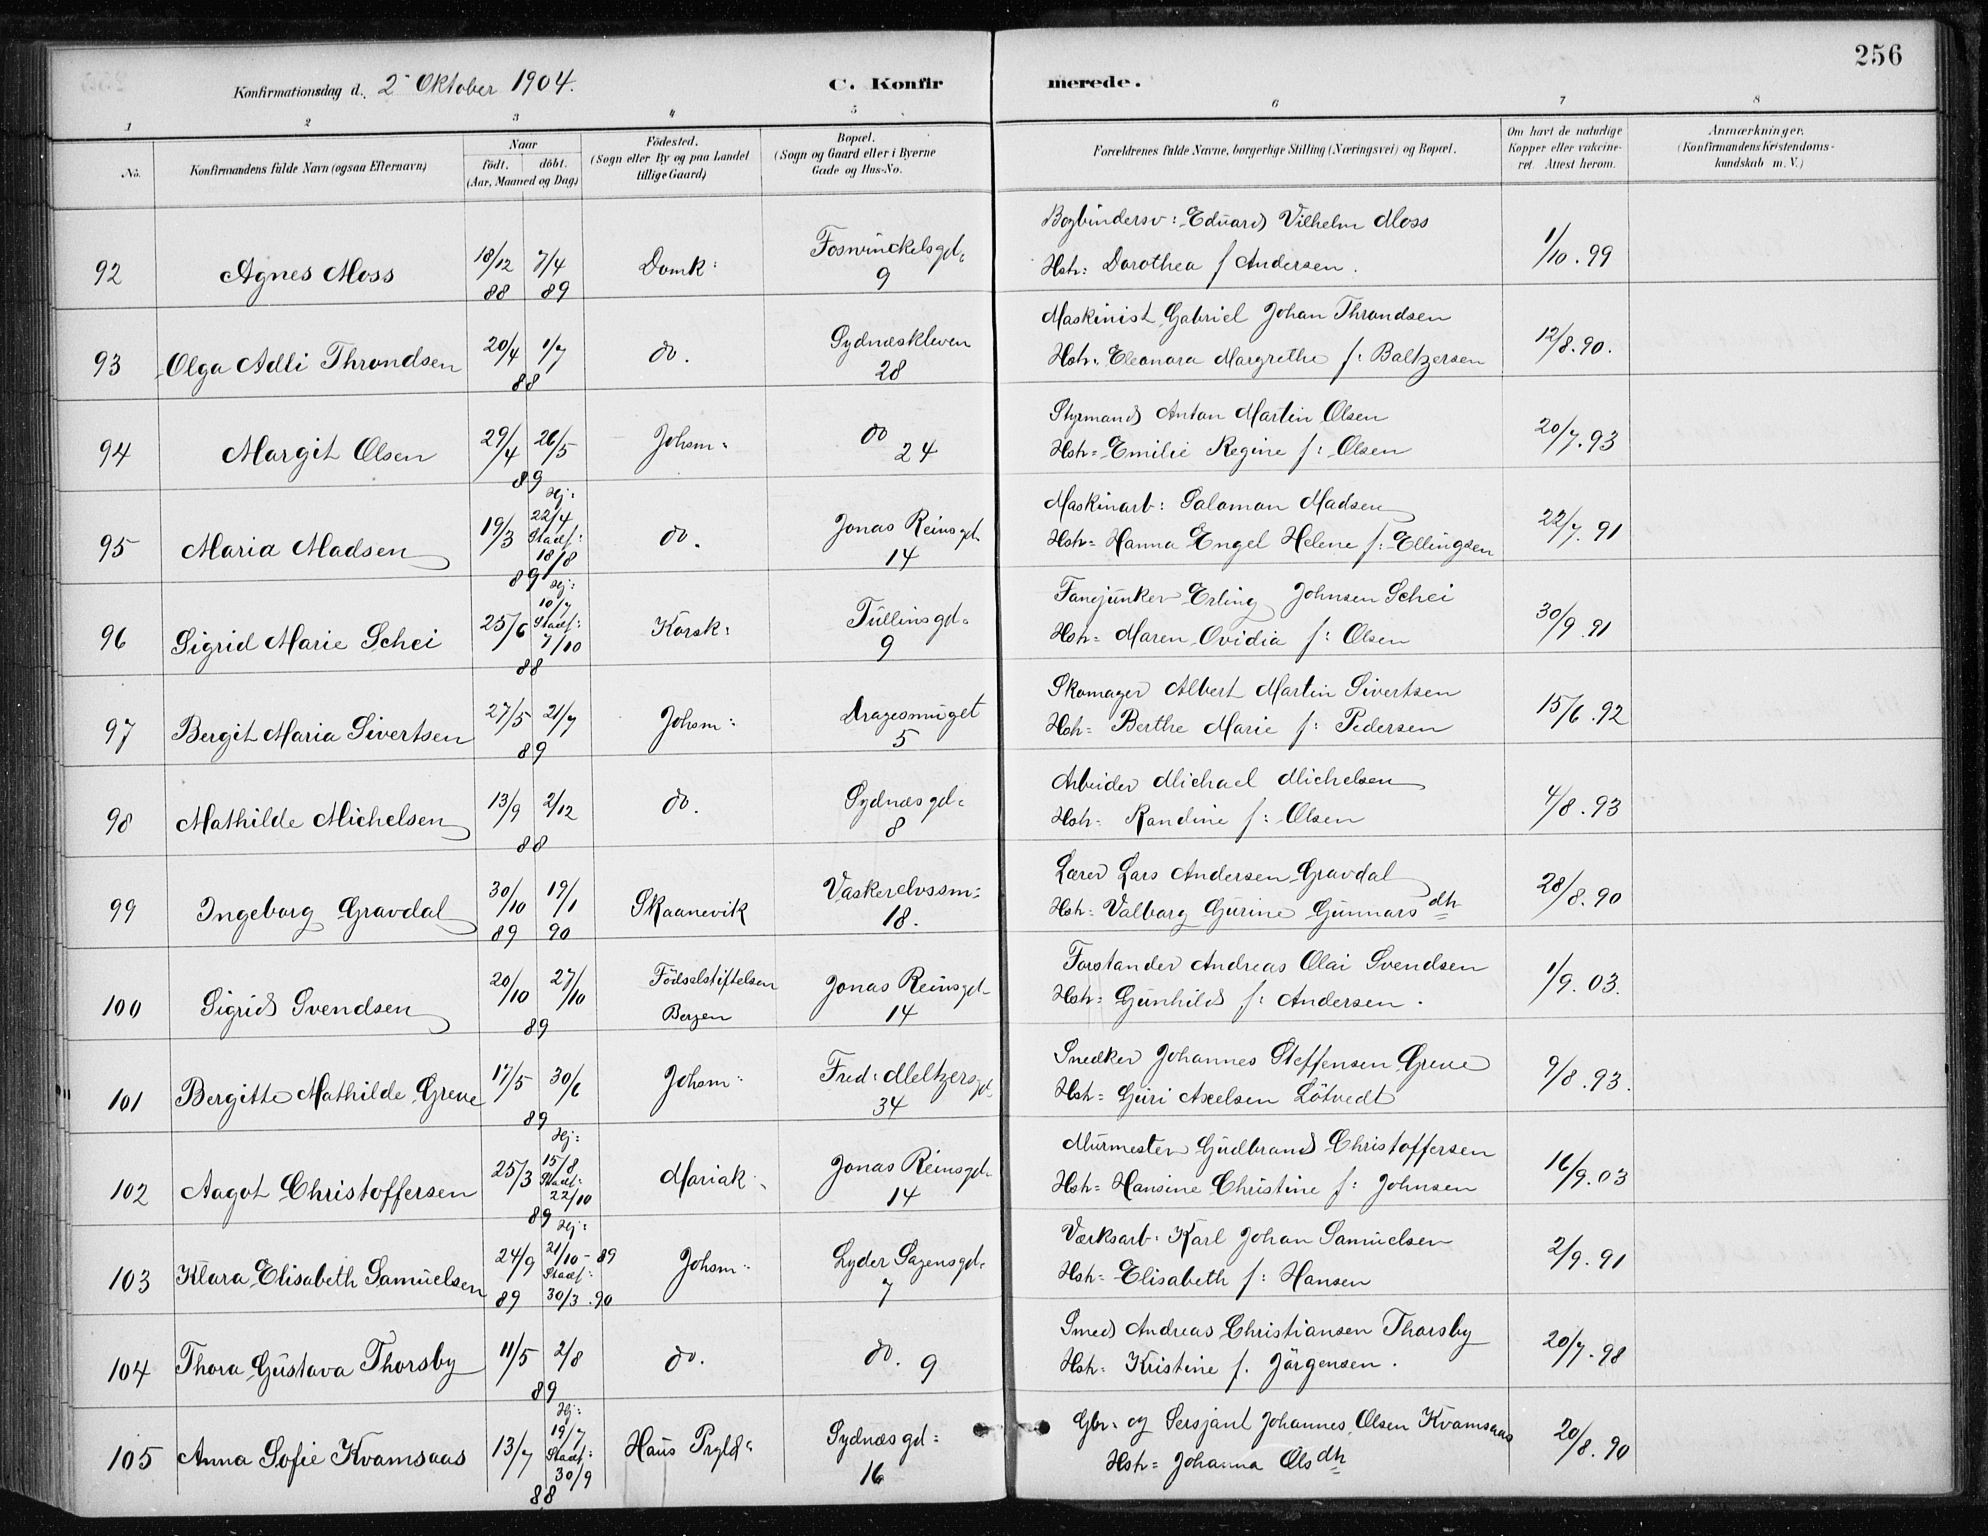 256
Konfirmationsdag d. 2 Oktober 1904.
C. Konfirmerede.
1 2 3 4 5 6 7 8
No. Konfirmandens fulde Navn (ogsaa Efternavn) Naar födt. döbt. (Aar, Maaned og Dag) Födested. (Sogn eller By og paa Landet tillige Gaard) Bopæl. (Sogn og Gaard eller i Byerne Gade og Hus-No. Forældrenes fulde Navne, borgerlige Stilling (Næringsvei) og Bopæl. Om havt de naturlige Kopper eller vakcineret. Attest herom. Anmærkninger. (Konfirmandens Kristendomskundskab m. V.)
92 Agnes Moss 18/12 88 7/4 89 Domk: Foswinckelsgd: 9 Bogbindersv: Eduard Vilhelm Moss 1/10.99
Hstr: Dorothea f Andersen.
93 Olga Adli Throndsen 20/4 1/7 88 do. Sydnæskleven 28 Maskinist Gabriel Johan Throndsen 12/8.90.
Hstr: Eleonora Margrethe f: Baltzersen
94 Margit Olsen 29/4 26/5 89 Johsm: do 24 Styrmand Anton Martin Olsen 20/7.93
Hstr: Emilie Regine f: Olsen
95 Maria Madsen 19/3 Hj: 22/4 Stadf: 18/8 89 do. Jonas Reinsgd. 14 Maskinarb: Salomon Madsen 22/7.91
Hstr: Hanna Engel Helene f: Ellingsen
96 Sigrid Marie Schei 25/6 Hj: 10/7 Stadf: 7/10 88 Korsk: Tullinsgd: 9 Fanejunker Erling Johnsen Schei 30/9.91
Hstr: Maren Ovidia f: Olsen
97 Bergit Maria Sivertsen 27/5 21/7 89 Johsm: Dragesmuget 5 Skomager Albert Martin Sivertsen 15/6.92
Hstr: Berthe Marie f: Pedersen
98 Mathilde Michelsen 13/9 2/12 88 do. Sydnæsgd: 8 Arbeider Michael Michelsen 4/8.93
Hstr: Randine f: Olsen
99 Ingeborg Gravdal 30/10 89 19/1 90 Skaanevik Vaskerelvssm: 18. Lærer Lars Andersen Gravdal 28/8.90
Hstr: Valborg Gurine Gunnarsdtr
100 Sigrid Svendsen 20/10 27/10 89 Födselstiftelsen Bergen Jonas Reinsgd. 14 Forstander Andreas Olai Svendsen 1/9.03.
Hstr: Gunhild f: Andersen.
101 Bergitte Mathilde Greve 17/5 30/6 89 Johsm: Fred: Meltzersgd. 34 Snedker Johannes Steffensen Greve 9/8.93.
Hstr: Guri Axelsen Lötvedt
102 Aagot Christoffersen 25/3 Hj: 15/8 Stadf: 22/10 89 Mariak: Jonas Reinsgd. 14 Murmester Gudbrand Christoffersen 16/9.03
Hstr: Hansine Christine f: Johnsen
103 Klara Elisabeth Samuelsen 24/9 89 Hj: 21/10-89 Stadf: 30/3.90 Johsm: Lyder Sagensgd. 7 Værksarb: Karl Johan Samuelsen 2/9.91
Hstr: Elisabeth f: Hansen
104 Thora Gustava Thorsby 11/5 2/8 89 do. do. 9 Smed Andreas Christiansen Thorsby 20/7.98
Hstr: Kristine f. Jörgensen.
105 Anna Sofie Kvamsaas 13/7 Hj: 19/7 Stadf: 30/9 88 Haus Prgld: Sydnæsgd: 16 Gbr: og Sersjant Johannes Olsen Kvamsaas 20/8.90
Hstr: Johanna Olsdtr